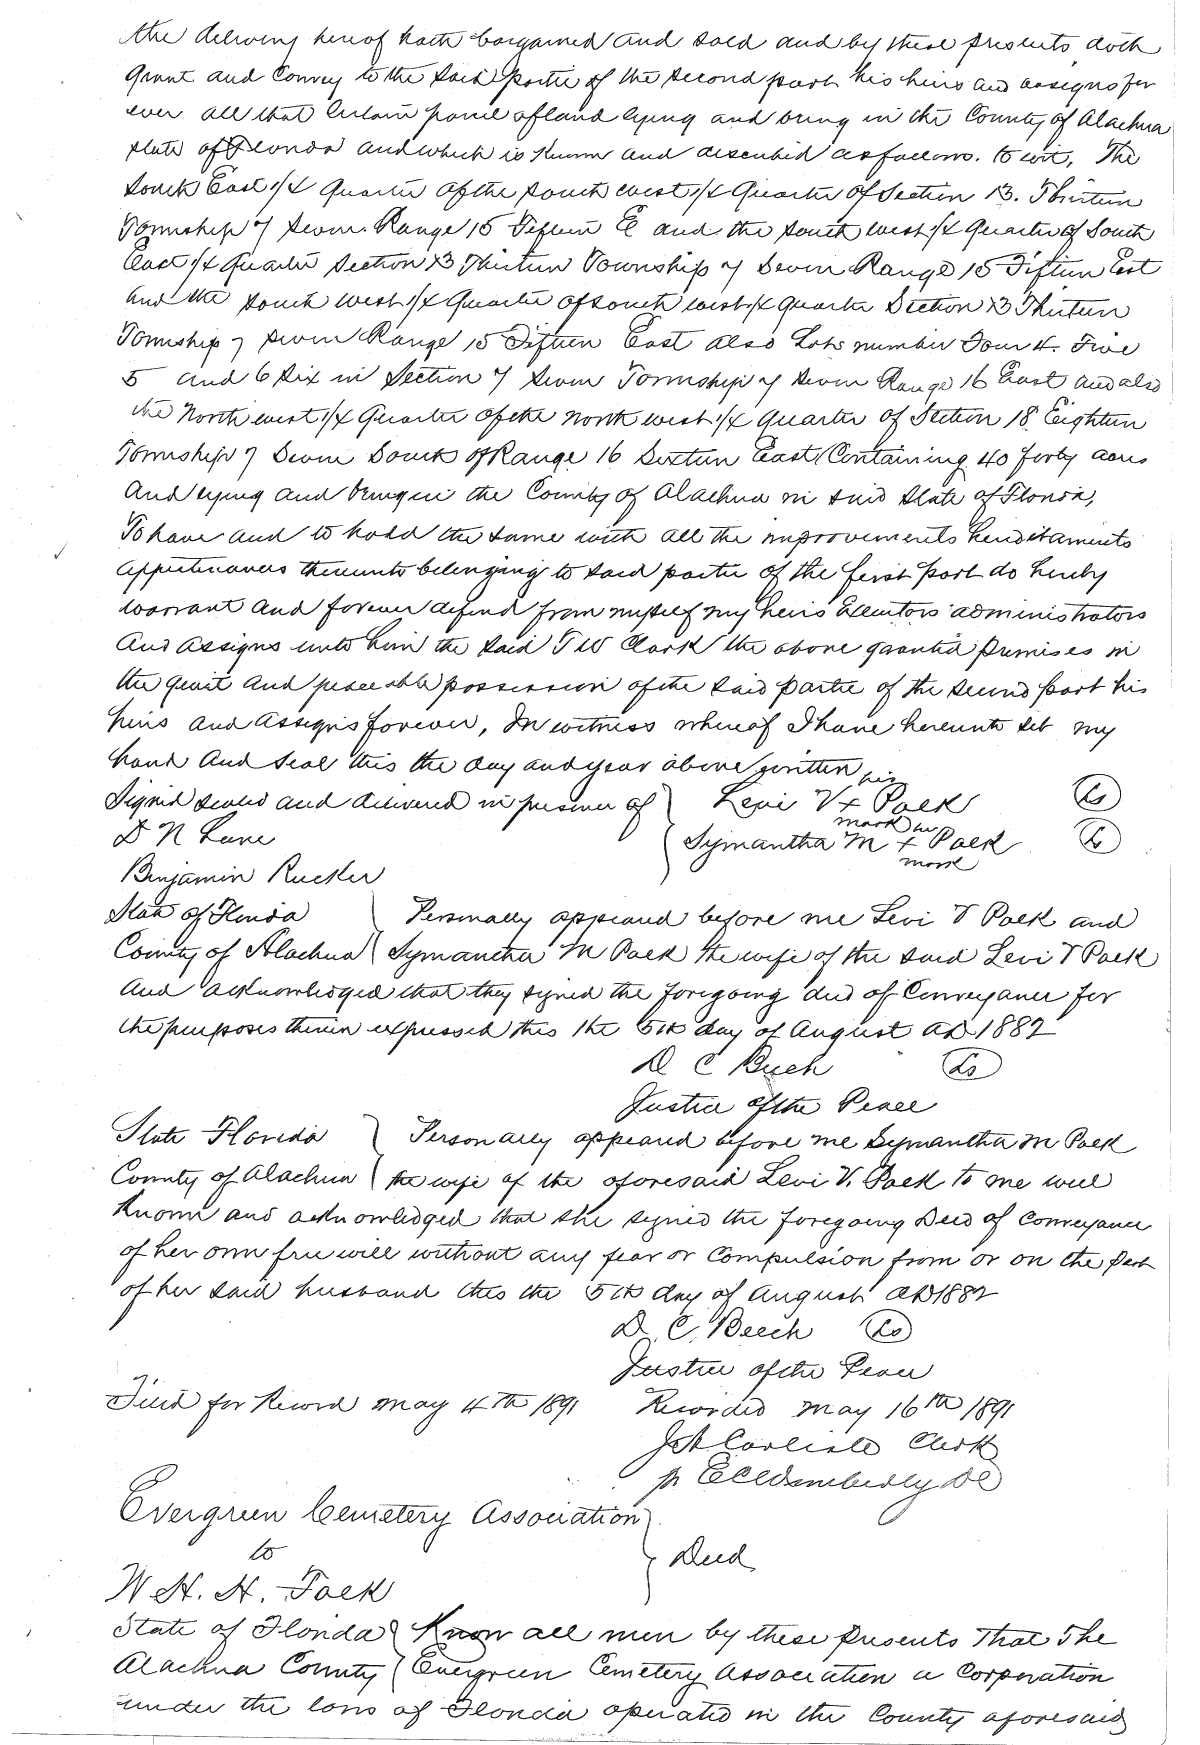 the delivery hereof hath bargained and sold and by these presents doth
grant and Convey to the said partie of the second part his heirs and assigns for
ever all that certain parcel of land lying and being in the County of Alachua
State of Florida and which is Known and described as follows. to wit, The
South East 1/4 Quarter of the South west 1/4 Quarter of Section 13. Thirteen
Township 7 Seven Range 15 Fifteen E and the South west 1/4 Quarter of South
East 1/4 Quarter Section 13 Thirteen Township 7 Seven Range 15 Fifteen East
and the South west 1/4 Quarter of South west 1/4 Quarter Section 13 Thirteen
Township 7 Seven Range 15 Fifteen East also Lots number Four 4. Five
5 and 6 Six in Section 7 Seven Township 7 Seven Range 16 East and also
the North west 1/4 Quarter of the North west 1/4 Quarter of Section 18 Eighteen
Township 7 Seven South of Range 16 Sixteen East Containing 40 forty acres
And lying and being in the County of Alachua in said State of Florida,
To have and to hold the same with all the improovements hereditaments
appurtenances thereunto belonging to said partie of the first part do hereby
warrant and forever defend from myself my heirs Executors administrators
and assigns unto him the said T W Clark the above granted premises in
the queit and peaceable possession of the said partie of the second part his
heirs and assigns forever, In witness whereof I have hereunto set my
hand and Seal this the day and year above written
Signed sealed and delivered in presence of } Levi V his x mark Paek Ls
D N Lane } Symantha M her x mark Paek Ls
Benjamin Rucker
State of Florida } Personally appeared before me Levi V Paek and
County of Alachua } Symantha M Paek the wife of the said Levi V Paek
and acknowledged that they signed the foregoing deed of Conveyance for
the purposes therein expressed this the 5th day of August AD 1882
D C Beech Ls
Justice of the Peace
State Florida } Personally appeared before me Symantha M Paek
County of Alachua } the wife of the aforesaid Levi V. Paek to me well
Known and acknowledged that she signed the foregoing Deed of Conveyance
of her own free will without any fear or Compulsion from or on the part
of her said husband this the 5th day of August AD 1882
D. C. Beech Ls
Justice of the Peace
Filed for Record May 4th 1891 Recorded May 16th 1891
J A Carlisle Clerk
pr DC
Evergreen Cemetery Association }
to } Deed
W H. H. Paek
State of Florida } Know all men by these presents That The
Alachua County } Evergreen Cemetery Association a Corporation
under the laws of Florida operated in the County aforesaid